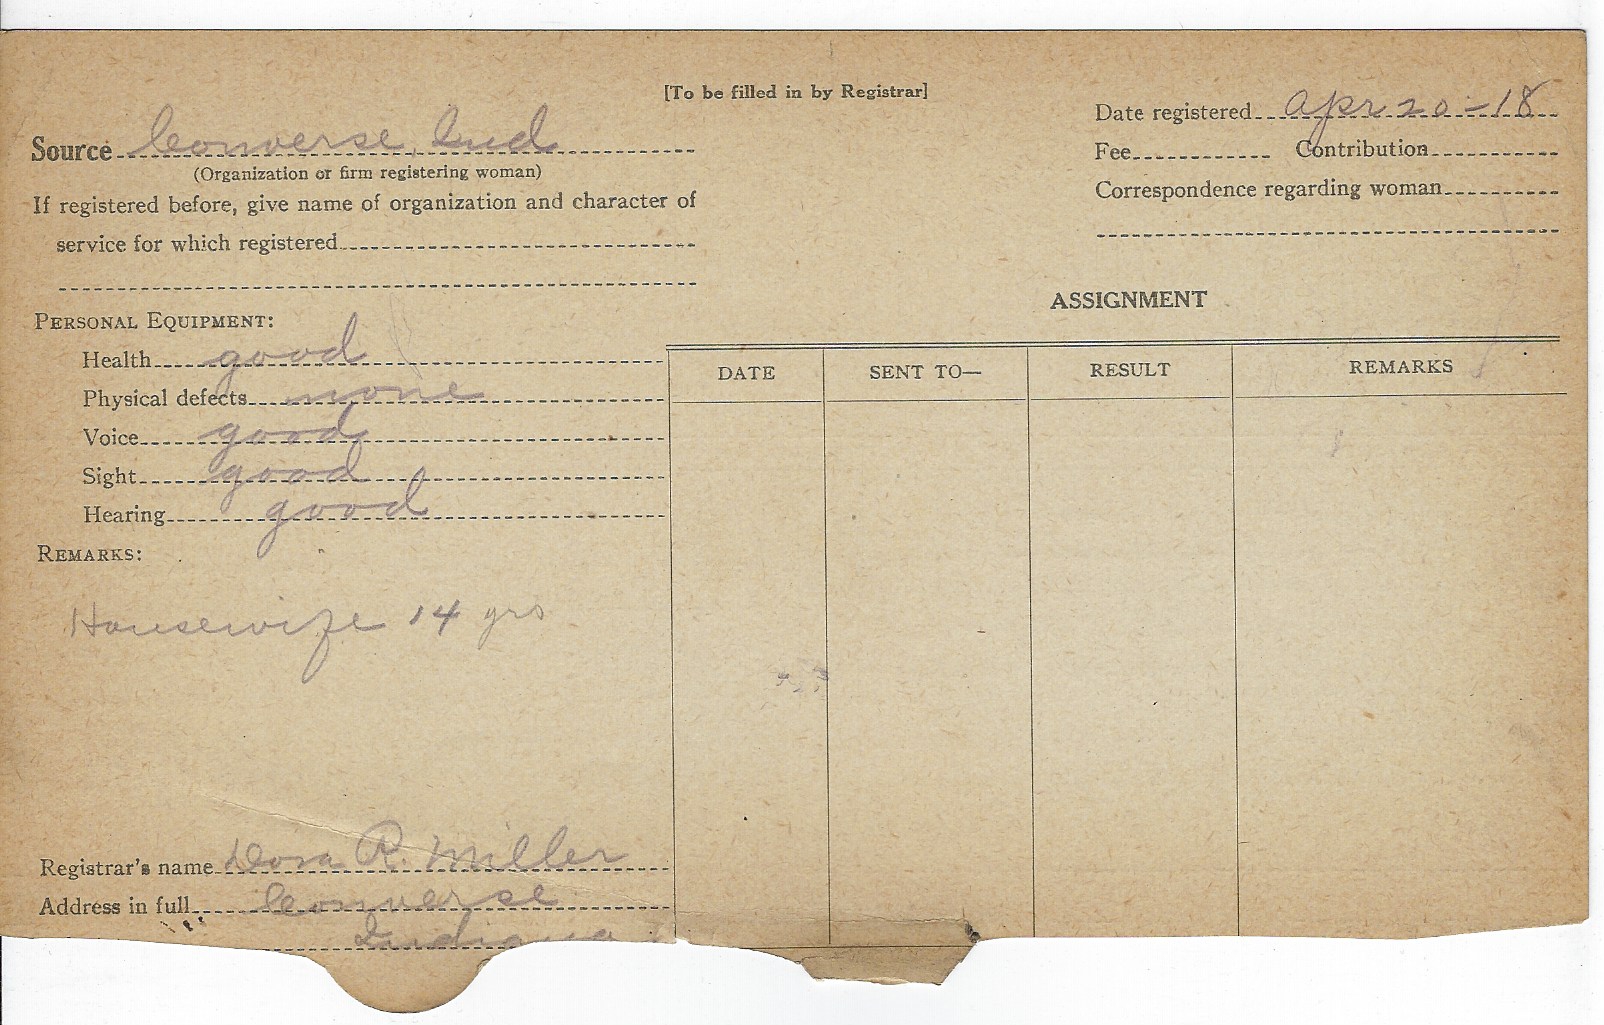 [To be filled in by Registrar]
Source Converse, Ind
(Organization or firm registering woman)
If registered before, give name of organization and character of
service for which registered
Date registered Apr 20-18
Fee Contribution
Correspondence regarding woman
PERSONAL EQUIPMENT:
Health good
Physical defects none
Voice good
Sight good
Hearing good
REMARKS:
Housewife 14 yrs
Registrar's name Dora R. Miller
Address in full Converse
Indiana
ASSIGNMENT
DATE SENT TO— RESULT REMARKS